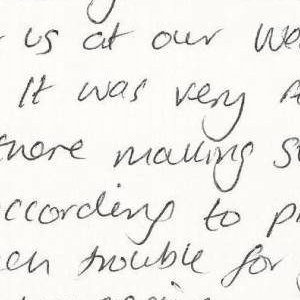 us at our We
It was very
there making s
according to p
en trouble for